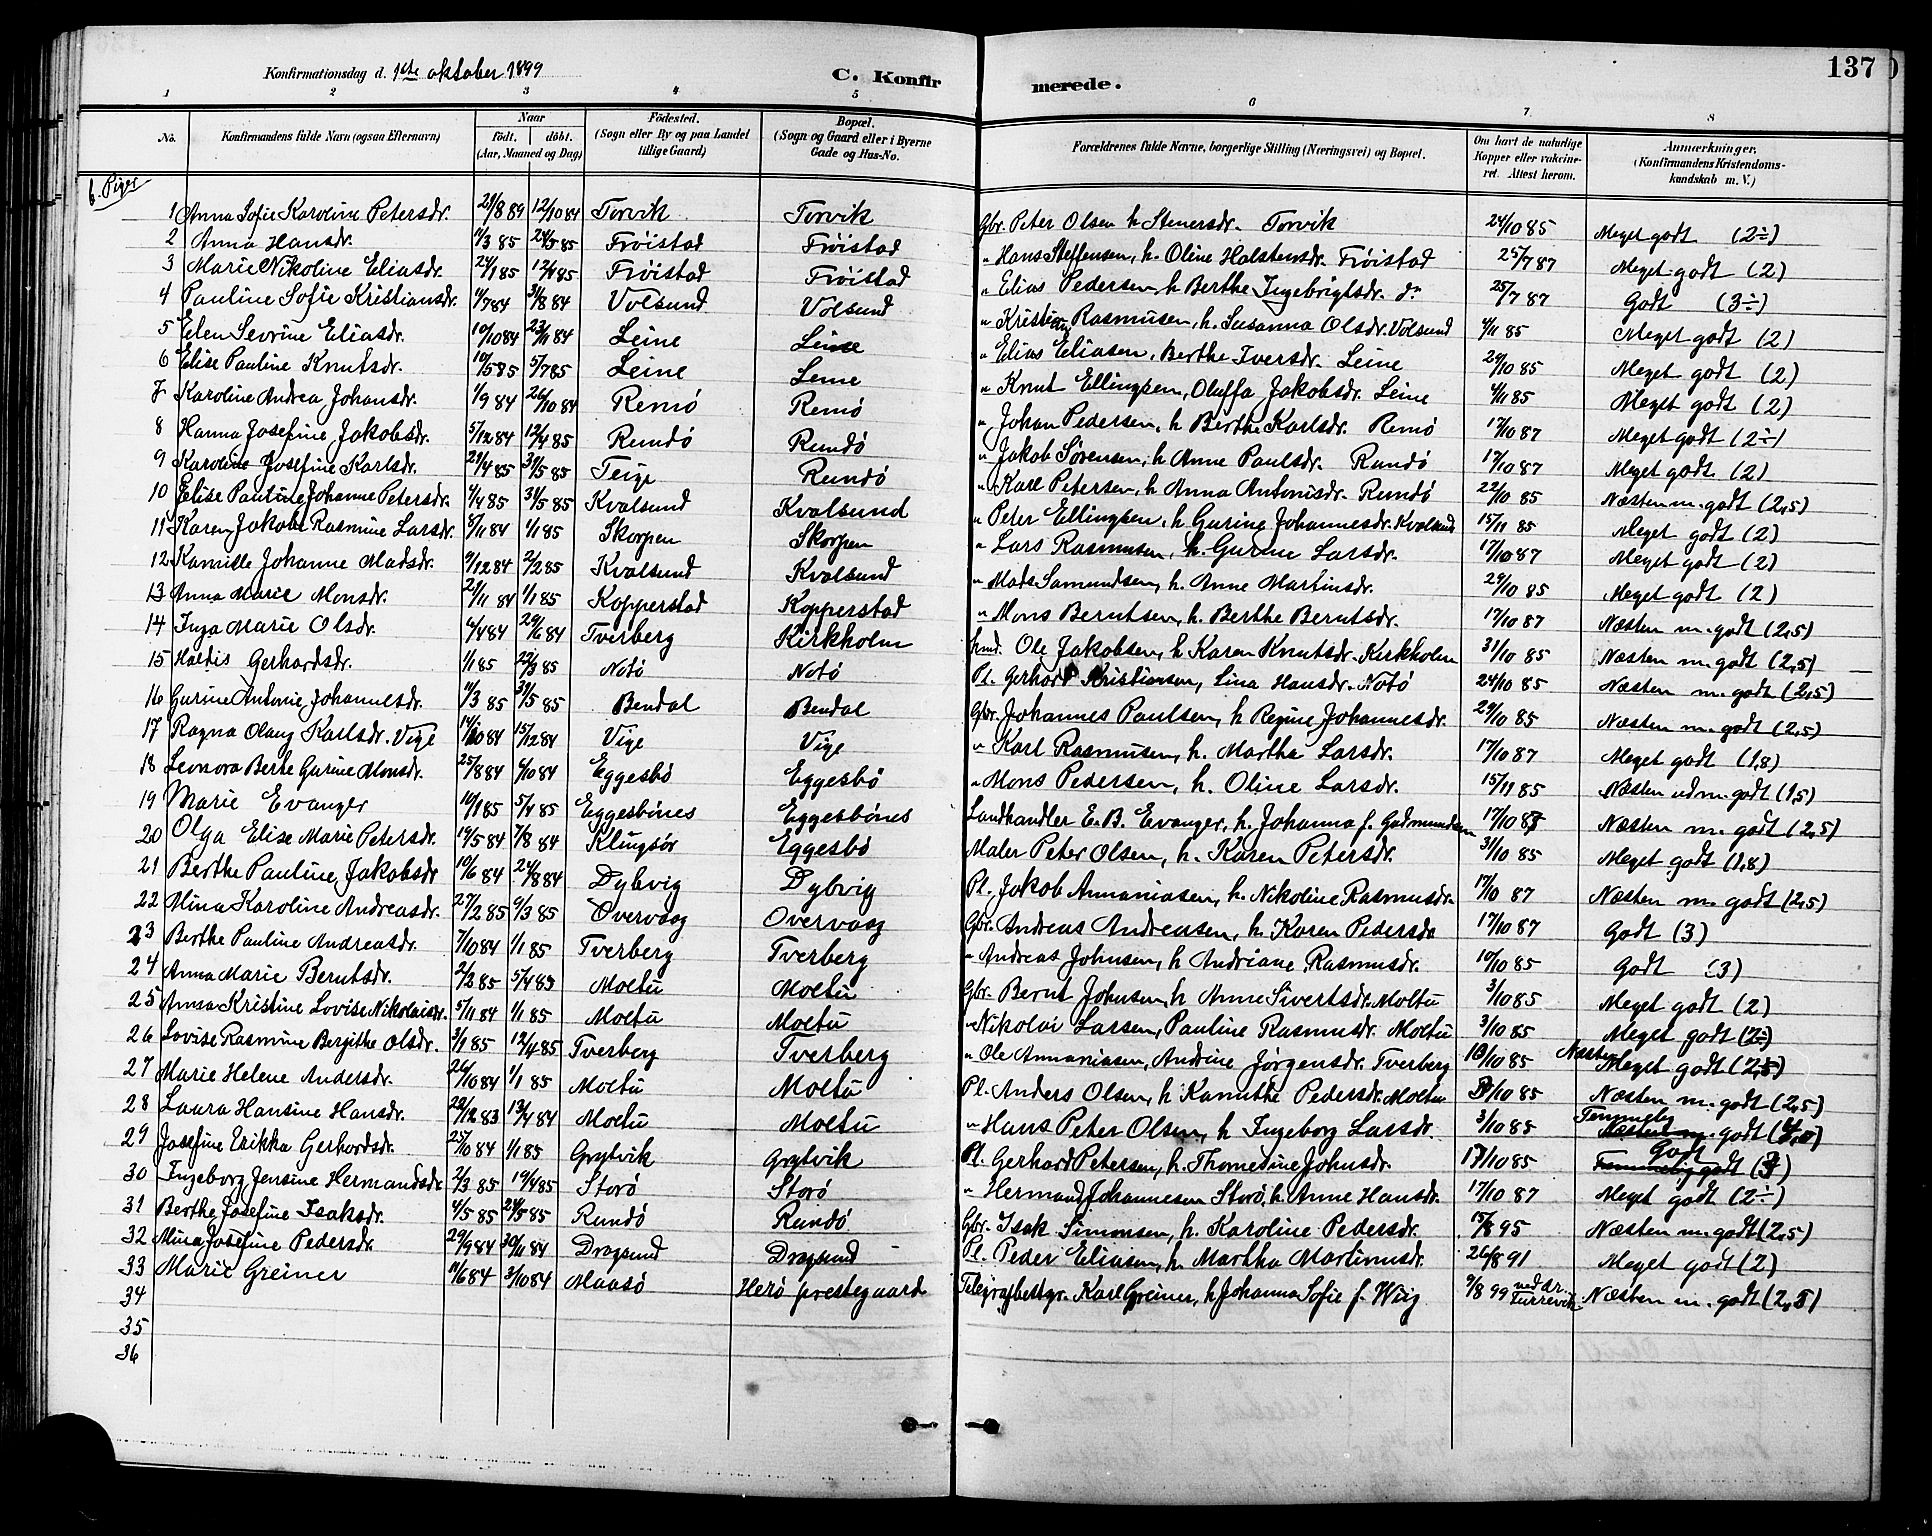 137
Konfirmationsdag d. 1ste oktober 1899 C. Konfirmerede.
1 2 3 4 5 6 7 8
No. Konfirmandens fulde Navn (ogsaa Efternavn) Naar födt. döbt. (Aar, Maaned og Dag) Födested. (Sogn eller By og paa Landet tillige Gaard) Bopæl. (Sogn og Gaard eller i Byerne Gade og Hus-No. Forældrenes fulde Navne, borgerlige Stilling (Næringsvei) og Bopæl. Om havt de naturlige Kopper eller vakcineret. Attest herom. Anmerkninger, (Konfirmandens Kristendomskundskab m. V.)
b. Piger
1 Anna Sofie Karoline Petersdr. 21/8 84 12/10 84 Torvik Torvik Gbr. Peter Olsen h Stenersdr. Torvik 24/10 85 Meget godt (2÷)
2 Anna Hansdr. 11/3 85 24/5 85 Frøistad Frøistad " Hans Steffensen, h. Oline Halstensdr. Frøistad 25/7 87 Meget godt (2)
3 Marie Nikoline Eliasdr. 24/1 85 12/4 85 Frøistad Frøistad " Elias Pedersen h Berthe Ingebrigtsdr. do 25/7 87 Godt (3÷)
4 Pauline Sofie Kristiansdr. 11/7 84 31/8 84 Volsund Volsund " Kristian Rasmusen, h. Susanna Olsdr. Volsund 4/11 85 Meget godt (2)
5 Elen Sevrine Eliasdr. 10/10 84 23/11 84 Leine Leine " Elias Eliasen, Berthe Iversdr. Leine 24/10 85 Meget godt (2)
6 Elise Pauline Knutsdr. 10/5 85 5/7 85 Leine Leine " Knut Ellingsen, Oluffa Jakobsdr. Leine 4/11 85 Meget godt (2)
7 Karoline Andrea Johansdr. 1/9 84 26/10 84 Remø Remø " Johan Pedersen, h Berthe Karlsdr. Remø 17/10 87 Meget godt (2÷)
8 Hanna Josefine Jakobsdr. 5/12 84 12/4 85 Rundø Rundø " Jakob Sørensen, h Anne Paulsdr. Rundø 17/10 87 Meget godt (2)
9 Karoline Josefine Karlsdr. 21/4 85 31/5 85 Teige Rundø " Karl Petersen, h Anna Antonisdr. Rundø 22/10 85 Næsten m. godt (2,5)
10 Elise Pauline Johanne Petersdr. 4/4 85 31/5 85 Kvalsund Kvalsund " Peter Ellingsen, h Gurine Johannesdr. Kvalsund 15/11 85 Meget godt (2)
11 Karen Jakobe Rasmine Larsdr. 8/11 84 1/1 85 Skorpen Skorpen " Lars Rasmusen, h. Gurine Larsdr. 17/10 87 Meget godt (2)
12 Kamille Johanne Madsdr. 9/12 84 2/2 85 Kvalsund Kvalsund " Mads Samundsen, h. Anne Martinsdr. 25/10 85 Meget godt (2)
13 Anna Marie Monsdr. 21/11 84 1/1 85 Kopperstad Kopperstad " Mons Berntsen, h. Berthe Berntsdr. 17/10 87 Næsten m. godt (2,5)
14 Inga Marie Olsdr. 4/4 84 29/6 84 Tverberg Kirkholm Ole Jakobsen, h Karen Knutsdr. Kirkholm 31/10 85 Næsten m. godt (2,5)
15 Haldis Gerhardsdr. 1/1 85 22/3 85 Notø Notø Pl. Gerhard Kristiansen, Lina Hansdr. Notø 24/10 85 Næsten m. godt (2,5)
16 Gurine Antonie Johannesdr. 11/3 85 31/5 85 Bendal Bendal Gbr. Johannes Paulsen, h Regine Johannesdr. 29/10 85 Næsten m. godt (2,5)
17 Ragna Olaug Karlsdr. Vige 14/10 84 15/12 84 Vige Vige " Karl Rasmusen, h. Martha Larsdr. 17/10 87 Meget godt (1,8)
18 Leonora Berte Gurine Monsdr. 25/8 84 4/10 84 Eggesbø Eggesbø " Mons Pedersen, h. Oline Larsdr. 15/11 85 Næsten udm. godt (1,5)
19 Marie Evanger 16/1 85 5/4 85 Eggesbønes Eggesbönes Landhandler E. B. Evanger, h. Johanna f. Gudmundsen 17/10 85 Næsten m. godt (2,5)
20 Olga Elise Marie Petersdr. 19/5 84 7/8 84 Klungsør Eggesbø Maler Peter Olsen, h. Karen Petersdr. 31/10 85 Meget godt (1,8)
21 Berthe Pauline Jakobsdr 10/6 84 24/8 84 Dybvig Dybvig Pl. Jakob Annaniasen, h. Nikoline Rasmusdr. 17/10 87 Næsten m. godt (2,5)
22 Mina Karoline Andreasdr. 27/2 85 9/3 85 Overvaag Overvaag Gbr. Andreas Andreasen, h. Karen Pedersdr 17/10 87 Godt (3)
23 Berthe Pauline Andreasdr. 7/10 84 1/1 85 Tverberg Tverberg " Andreas Johnsen, h Andriane Rasmusdr. 10/10 85 Godt (3)
24 Anna Marie Berntsdr. 2/2 85 5/4 85 Moltu Moltu Gbr. Bernt Johnsen, h Anne Sivertsdr. Moltu 3/10 85 Meget godt (2)
25 Anna Kristine Lovise Nikolaisdr. 5/11 84 1/1 85 Moltu Moltu " Nikolai Larsen, Pauline Rasmusdr. Moltu 3/10 85 Meget godt (2÷)
26 Lovise Rasmine Bergithe Olsdr. 3/1 85 12/4 85 Tverberg Tverberg " Ole Annaniasen, Andrine Jørgensdr. Tverberg 10/10 85 Næsten Meget godt (2,5)
27 Marie Helene Andersdr. 26/10 84 1/1 85 Moltu Moltu Pl. Anders Olsen, h Kanuthe Pedersdr. Moltu 3/10 85 Næsten m. godt (2,5)
28 Laura Hansine Hansdr. 29/12 83 13/4 84 Moltu Moltu " Hans Peter Olsen, h Ingeborg Larsdr. 3/10 85 Temmelig Næsten m. godt (4,0)
29 Josefine Erikka Gerhardsdr. 25/10 84 1/1 85 Grytvik Grytvik Pl. Gerhard Petersen, h. Thomedine Johnsdr. 17/10 85 Godt Temmelig godt (3)
30 Ingeborg Jensine Hermandsdr 2/3 85 19/4 85 Storø Storø " Hermand Johannesen Storø, h. Anne Hansdr. 17/10 87 Meget godt (2÷)
31 Berthe Josefine Isaksdr. 4/5 85 24/5 85 Rundø Rundø Gbr. Isak Simonsen, h. Karoline Pedersdr. 15/8 95 Næsten m. godt (2,5)
32 Mina Josefine Pedersdr. 29/9 84 30/11 84 Dragsund Dragsund Pl. Peder Eliasen, h. Martha Martinusdr. 26/8 91 Meget godt (2)
33 Marie Greiner 11/6 84 3/10 84 Maasø Herø prestegaard Telegrafbestyr. Karl Greiner, h Johanna Sofie f. Wiig 9/8 99 ved dr. Næsten m. godt (2,5)
34
35
36